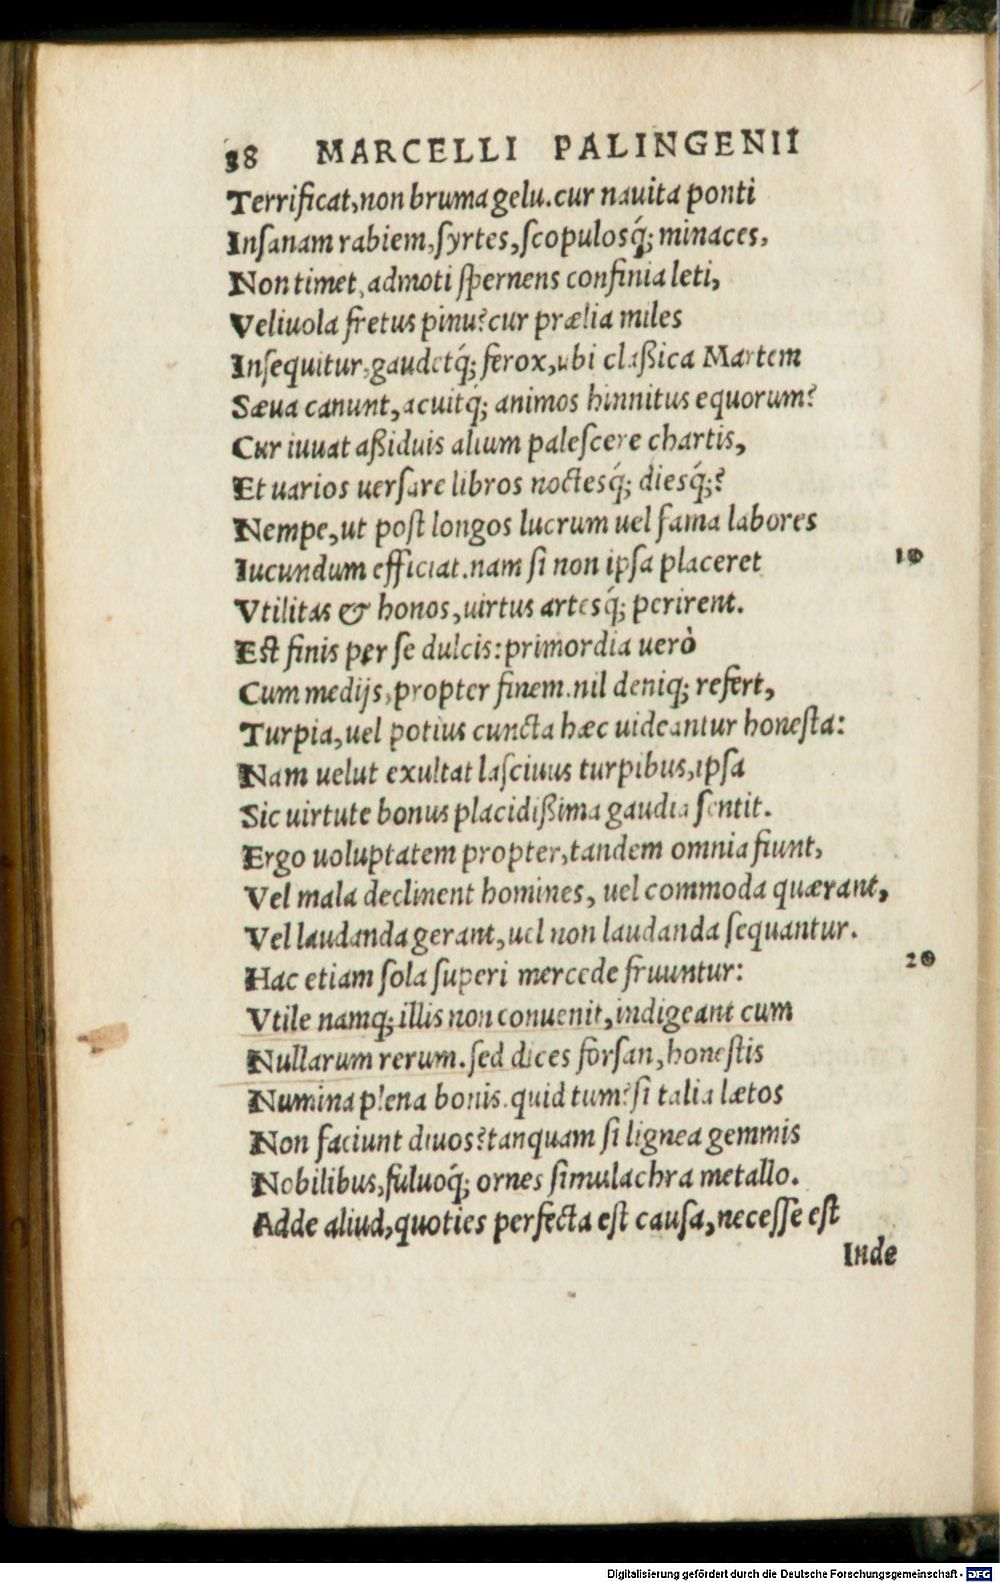 38 MARCELLI PALINGENII
Terrificat, non bruma gelu. cur nauita ponti
Inſanam rabiem, ſyrtes, ſcopulosq́; minaces,
Non timet, admoti ſpernens confinia leti,
Veliuola fretus pinu? cur prælia miles
Inſequitur, gaudetq́; ferox, ubi claßica Martem
Sæua canunt, acuitq́; animos hinnitus equorum?
Cur iuuat aßiduis alium paleſcere chartis,
Et uarios uerſare libros noctesq́; diesq́;?
Nempe, ut poſt longos lucrum uel fama labores
Iucundum efficiat. nam ſi non ipſa placeret 10
Vtilitas & honos, uirtus artesq́; perirent.
Eſt finis per ſe dulcis: primordia uerò
Cum medijs, propter finem. nil deniq; refert,
Turpia, uel potius cuncta hæc uideantur honeſta:
Nam uelut exultat laſciuus turpibus, ipſa
Sic uirtute bonus placidißima gaudia ſentit.
Ergo uoluptatem propter, tandem omnia fiunt,
Vel mala declinent homines, uel commoda quærant,
Vel laudanda gerant, uel non laudanda ſequantur.
Hac etiam ſola ſuperi mercede fruuntur: 20
Vtile namq; illis non conuenit, indigeant cum
Nullarum rerum. ſed dices forſan, honeſtis
Numina plena bonis. quid tum? ſi talia lætos
Non faciunt diuos? tanquam ſi lignea gemmis
Nobilibus, fuluoq́; ornes ſimulachra metallo.
Adde aliud, quoties perfecta eſt cauſa, neceſſe eſt
Inde
Digitalisierung gefördert durch die Deutsche Forschungsgemeinschaft - DFG